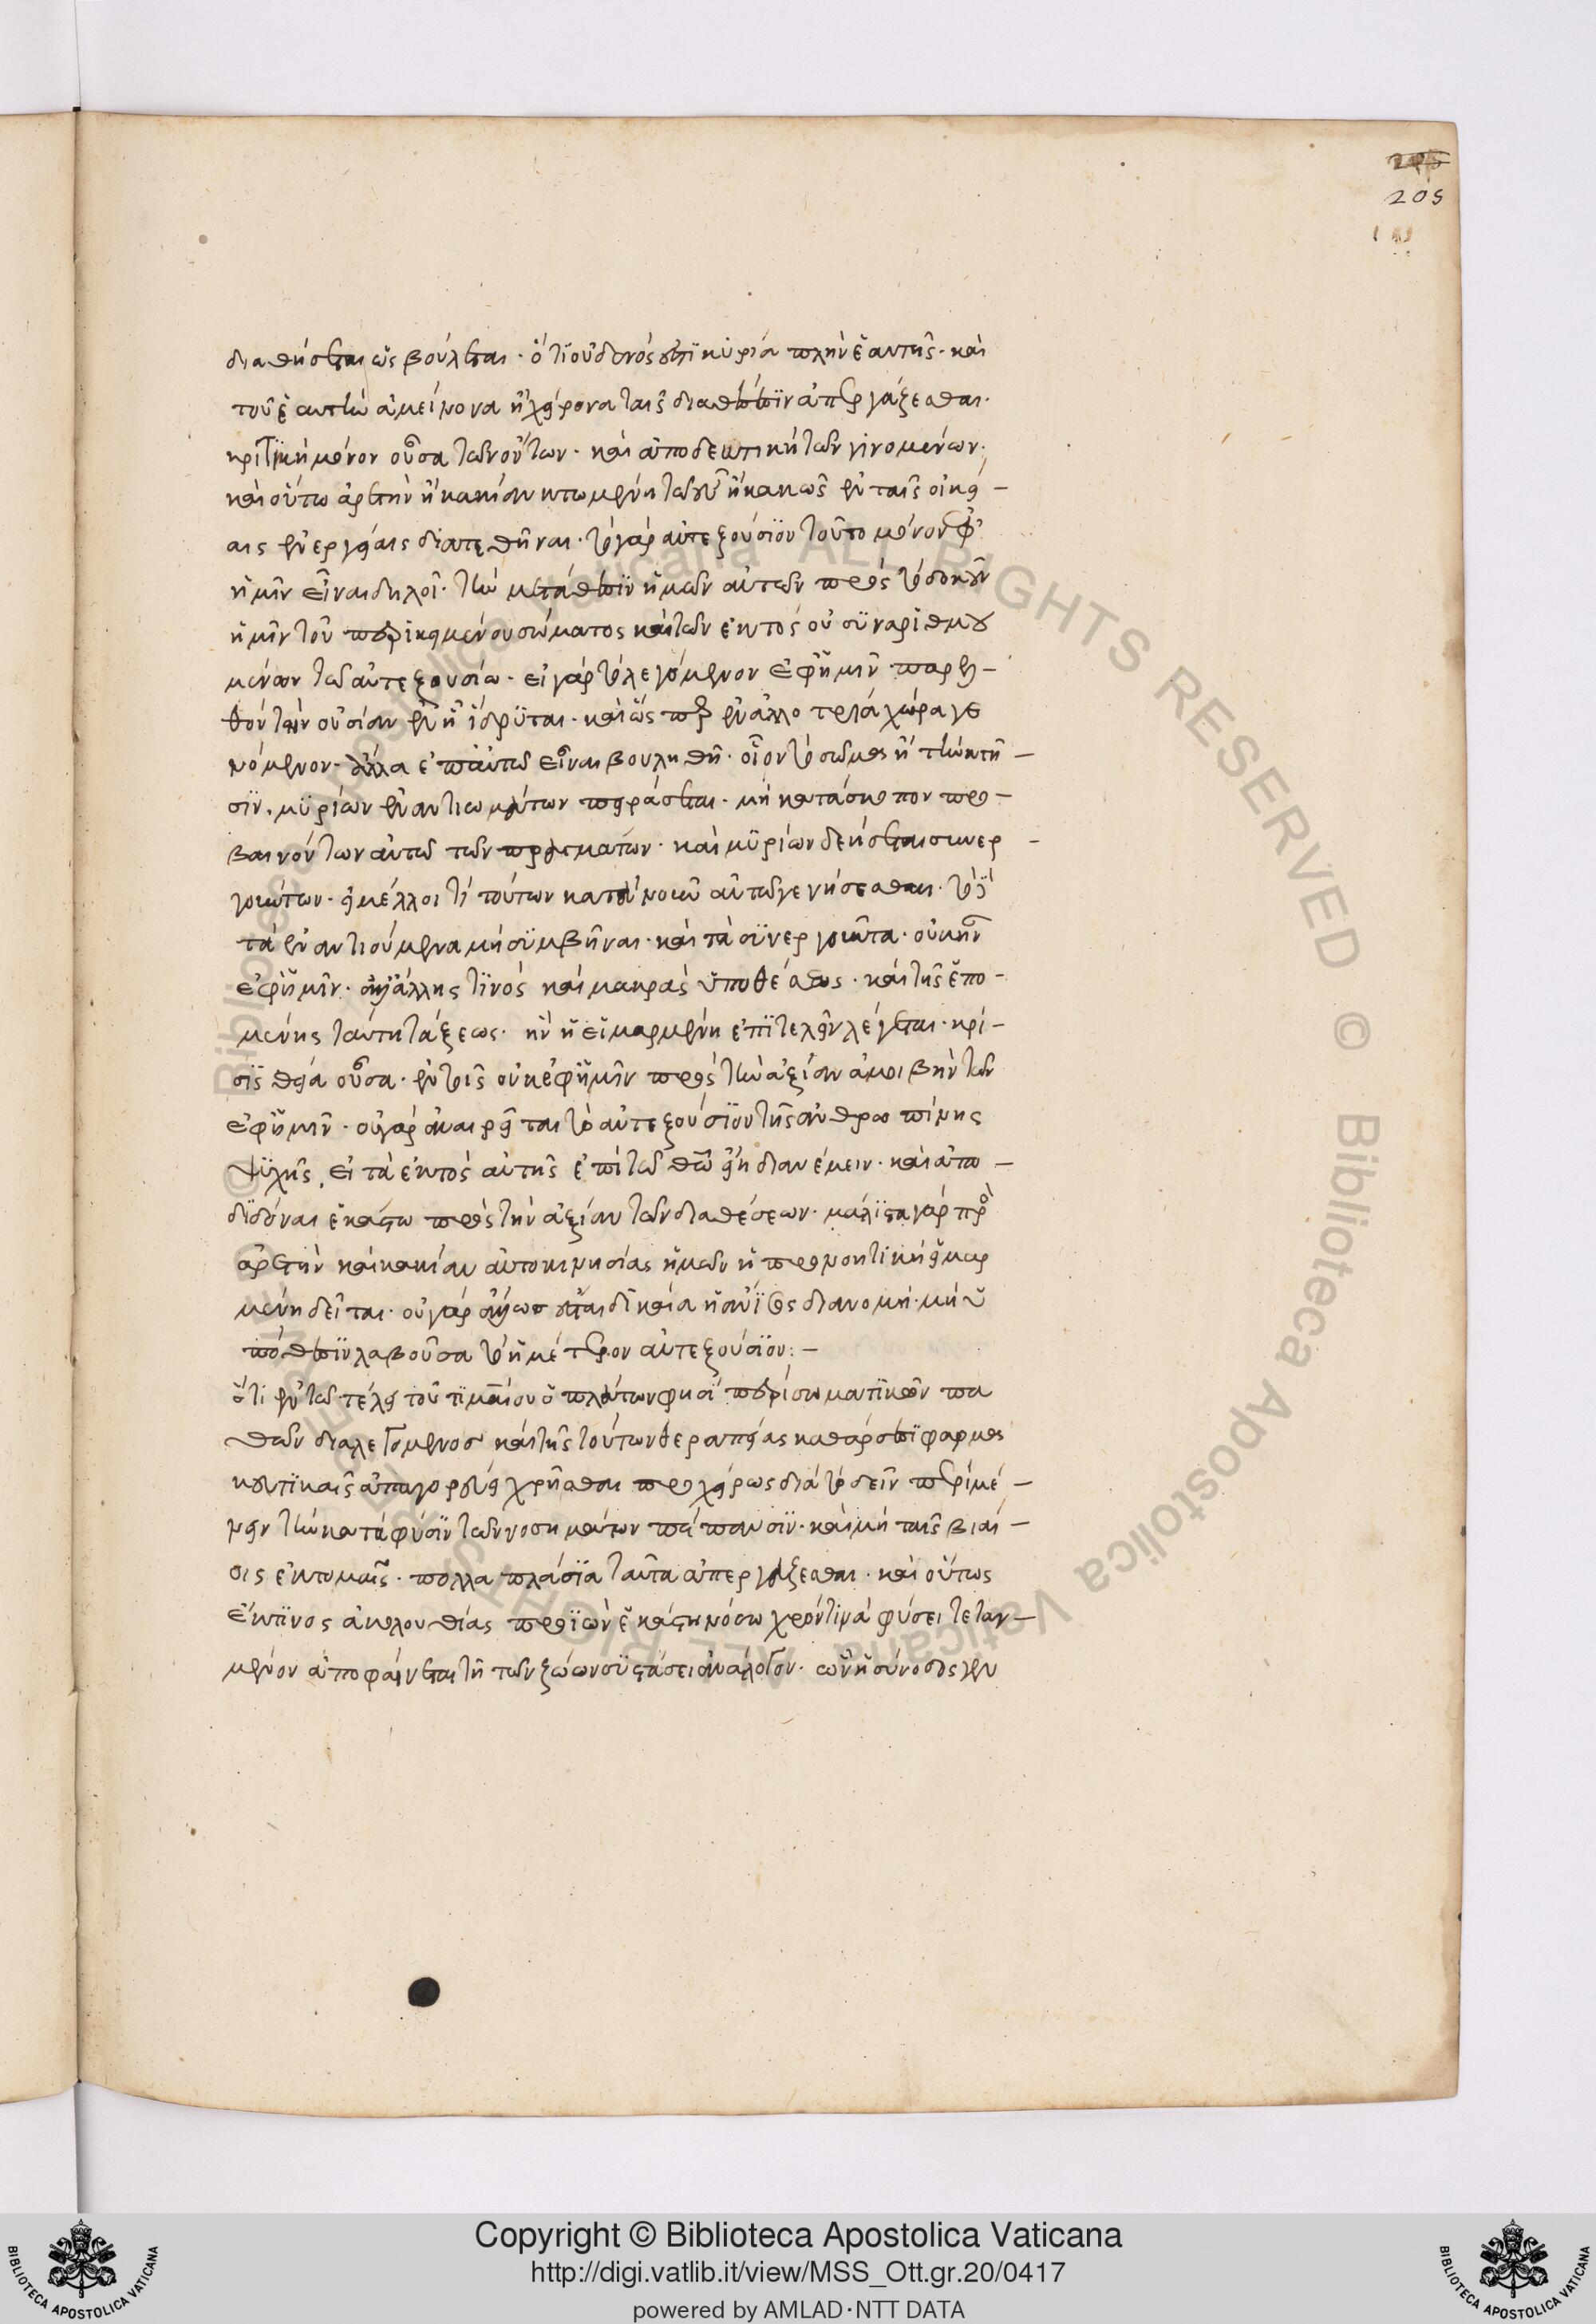 205
διαθήσεται ὡς βούλεται· ὅτι οὐδενός ἐστι κυρία πλὴν ἑαυτῆς· καὶ
τοῦ ἑαυτὴν ἀμείνονα ἢ χείρονα ταῖς διαθέσεσιν ἀπεργάζεσθαι·
κριτικὴ μόνον οὖσα τῶν ὄντων· καὶ ἀποδεκτικὴ τῶν γινομένων·
καὶ οὕτω ἀρετὴν ἢ κακίαν κτωμένη τῶ εὖ ἢ κακῶς ἐν ταῖς οἰκεί-
αις ἐνεργείαις διατεθῆναι· τὸ γὰρ αὐτεξούσιον τοῦτο μόνον ἐφ'
ἡμῖν εἶναι δηλοῖ· τὴν μετάθεσιν ἡμῶν αὐτῶν πρὸς τὸ δοκοῦν
ἡμῖν τοῦ περικειμένου σώματος καὶ τῶν ἐκτὸς οὐ συναριθμου
μένων τῶ αὐτεξουσίω· εἰ γὰρ τὸ λεγόμενον ἐφ' ἡμῖν παρελ-
θὸν τὴν οὐσίαν ἐν ἧ ἵδρυται· καὶ ὥσπερ ἐν ἀλλοτρία χώρα γε
νόμενον· ἄλλα ἐπ' αὐτῶ εἶναι βουληθῆ· οἷον τὸ σῶμα ἢ τὴν κτῆ-
σιν, μυρίων ἐναντιωμάτων πειράσεται· μὴ κατὰ σκοπὸν προ-
βαινόντων αὐτῶ τῶν πραγμάτων· καὶ μυρίων δεήσεται συνερ-
γούντων· εἰ μέλλοι τί τούτων κατὰ νοῦν αὐτῶ γενήσεσθαι· τὸ δὲ
τὰ ἐναντιούμενα μὴ συμβῆναι· καὶ τὰ συνεργοῦντα· οὐκ ἦν
ἐφ' ἡμῖν· ἀλλ' ἄλλης τινὸς καὶ μακρᾶς ὑποθέσεως· καὶ τῆς ἑπο-
μένης ταύτη τάξεως· ἣν ἡ εἱμαρμένη ἐπιτελεῖν λέγεται· κρί-
σις θεία οὖσα· ἐν τοῖς οὐκ ἐφ' ἡμῖν πρὸς τὴν ἀξίαν ἀμοιβὴν τῶν
ἐφ' ἡμῖν· οὐ γὰρ ἀναιρεῖται τὸ αὐτεξούσιον τῆς ἀνθρωπίνης
ψυχῆς, εἰ τὰ ἐκτὸς αὐτῆς ἐπὶ τῶ θεῶ εἴη διανέμειν· καὶ ἀπο-
διδόναι ἑκάστω πρὸς τὴν ἀξίαν τῶν διαθέσεων· μάλιστα γὰρ πρὸ
ἀρετὴν καὶ κακίαν αὐτοκινησίας ἡμῶν ἡ προνοητικὴ εἱμαρ
μένη δεῖται· οὐ γὰρ ἄλλως ἔσται δικαία ἡ ἄνισος διανομὴ· μὴ ὑ
πόθεσιν λαβοῦσα τὸ ἡμέτερον αὐτεξούσιον:-
ὅτι ἐν τῶ τέλει τοῦ τιμαίου ὁ πλάτων φησὶ περὶ σωματικῶν πα
θῶν διαλεγόμενος καὶ τῆς τούτων θεραπείας καθάρσεσι φαρμα
κευτικαῖς ἀπαγορεύει χρῆσθαι προχείρως διὰ τὸ δεῖν περιμέ-
νειν τὴν κατὰ φύσιν τῶν νοσημάτων πέπανσιν· καὶ μὴ ταῖς βιαί-
οις ἐκτομαῖς· πολλαπλάσια ταῦτα ἀπεργάζεσθαι· καὶ οὕτως
ἔκ τινος ἀκολουθίας προϊὼν ἑκάστη νόσω χρόν τινὰ φύσει τεταγ-
μένον ἀποφαίνεται τῆ τῶν ζώων συστάσει ἀνάλογον· ὧν ἡ σύνοδος γεν
Copyright © Biblioteca Apostolica Vaticana
http://digi.vatlib.it/view/MSS_Ott.gr.20/0417
powered by AMLAD·NTT DATA